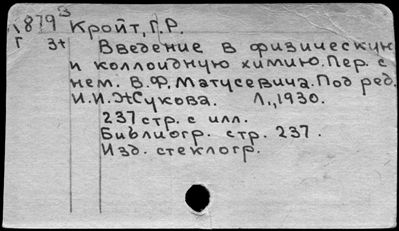 1879 З Кройт, Г.Р.
Г 3+ Введение в физическую
и коллоидную химию. Пер. с
нем. В.Ф. Матусевича. Под ред.
И.И. Жукова. Л., 1930.
237 стр. с илл.
Библиогр. стр. 237.
Изд. стеклогр.